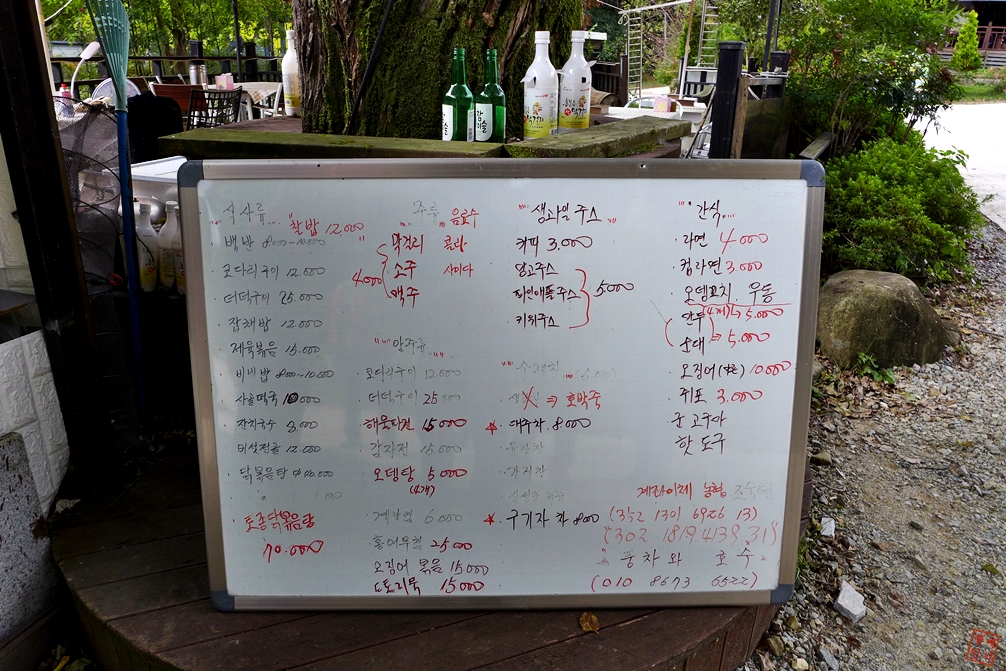 식사류
찰밥 12,000
백반 8,000~10,000
코다리구이 12,000
더덕구이 25,000
잡채밥 12,000
제육볶음 15,000
비빔밥 8,000~10,000
사골떡국 10,000
잔치국수 8,000
버섯전골 12,000
닭볶음탕 40,000
토종닭볶음탕
70,000
주류 음료수
막걸리 콜라
소주 사이다
4,000
맥주
안주류
코다리구이 12,000
더덕구이 25,000
해물파전 15,000
감자전 15,000
오뎅탕 5,000
(4개)
계란찜 6,000
홍어무침 25,000
오징어 볶음 15,000
도토리묵 15,000
"생과일 주스"
커피 3,000
망고주스
파인애플주스
키위주스
5,000
⇒ 호박죽
대추차 8,000
구기자 차 8,000
"간식"
라면 4,000
컵라면 3,000
오뎅꼬치 우동
만두 (4개) → 5,000
순대 → 5,000
오징어 10,000
쥐포 3,000
군 고구마
핫 도구
계좌이체 농협
(352 1301 6926 13)
(302 1819 4139 31)
풍차와 호수
(010 8673 6522)